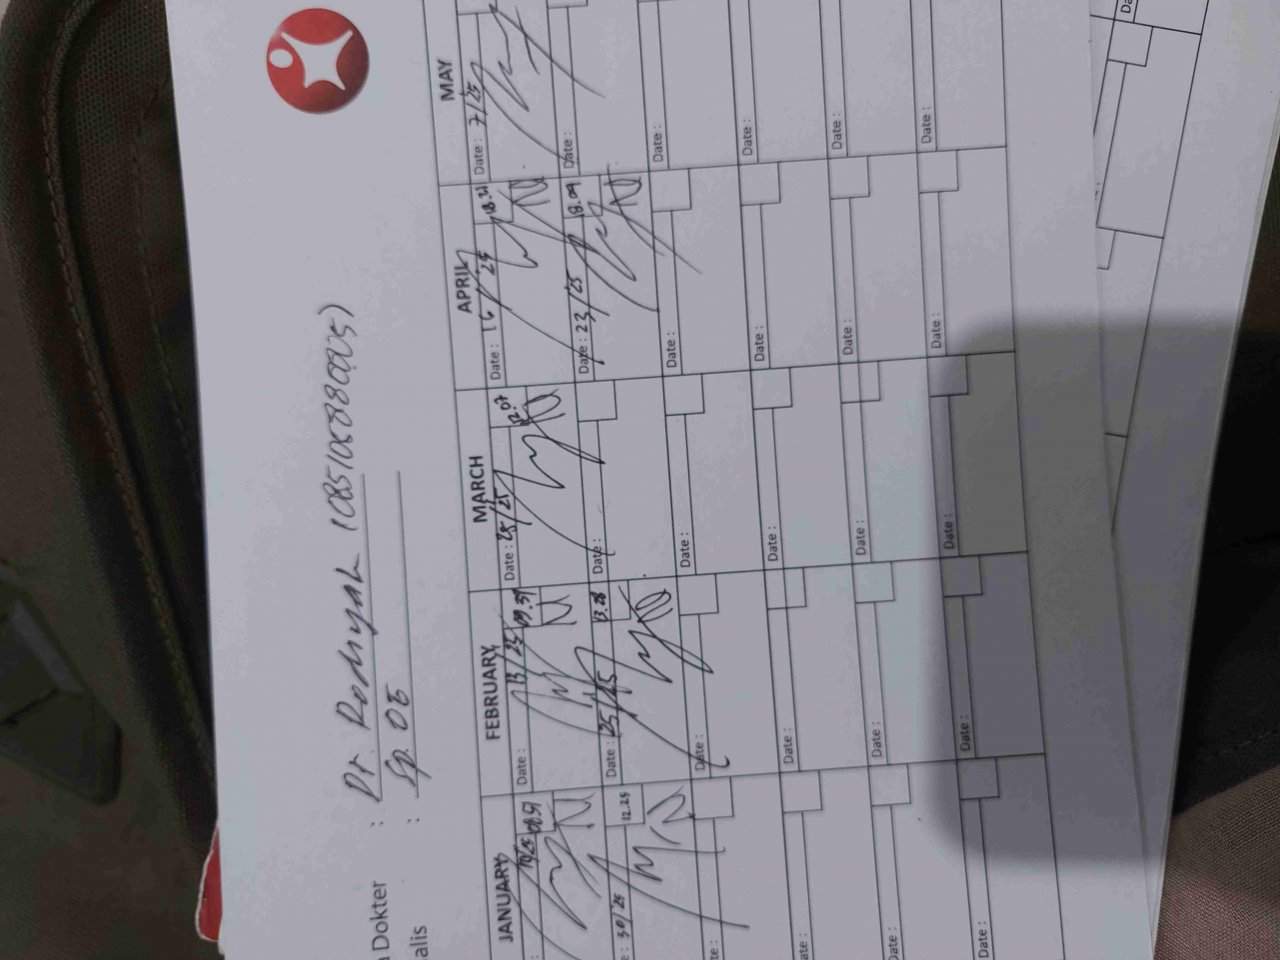 a Dokter : Dr. Rodiyah (085106880005)
alis : Sp. OG
JANUARY FEBRUARY MARCH APRIL MAY
10/25 08.51 Date : 13/25 09.37 Date : 25/25 12.07 Date : 16/25 18.21 Date : 7/25
: 30/25 12.25 Date : 25/25 13.28 Date : Date : 23/25 18.09 Date :
te : Date : Date : Date : Date :
te : Date : Date : Date : Date :
Date : Date : Date : Date : Date :
Date : Date : Date : Date : Date :